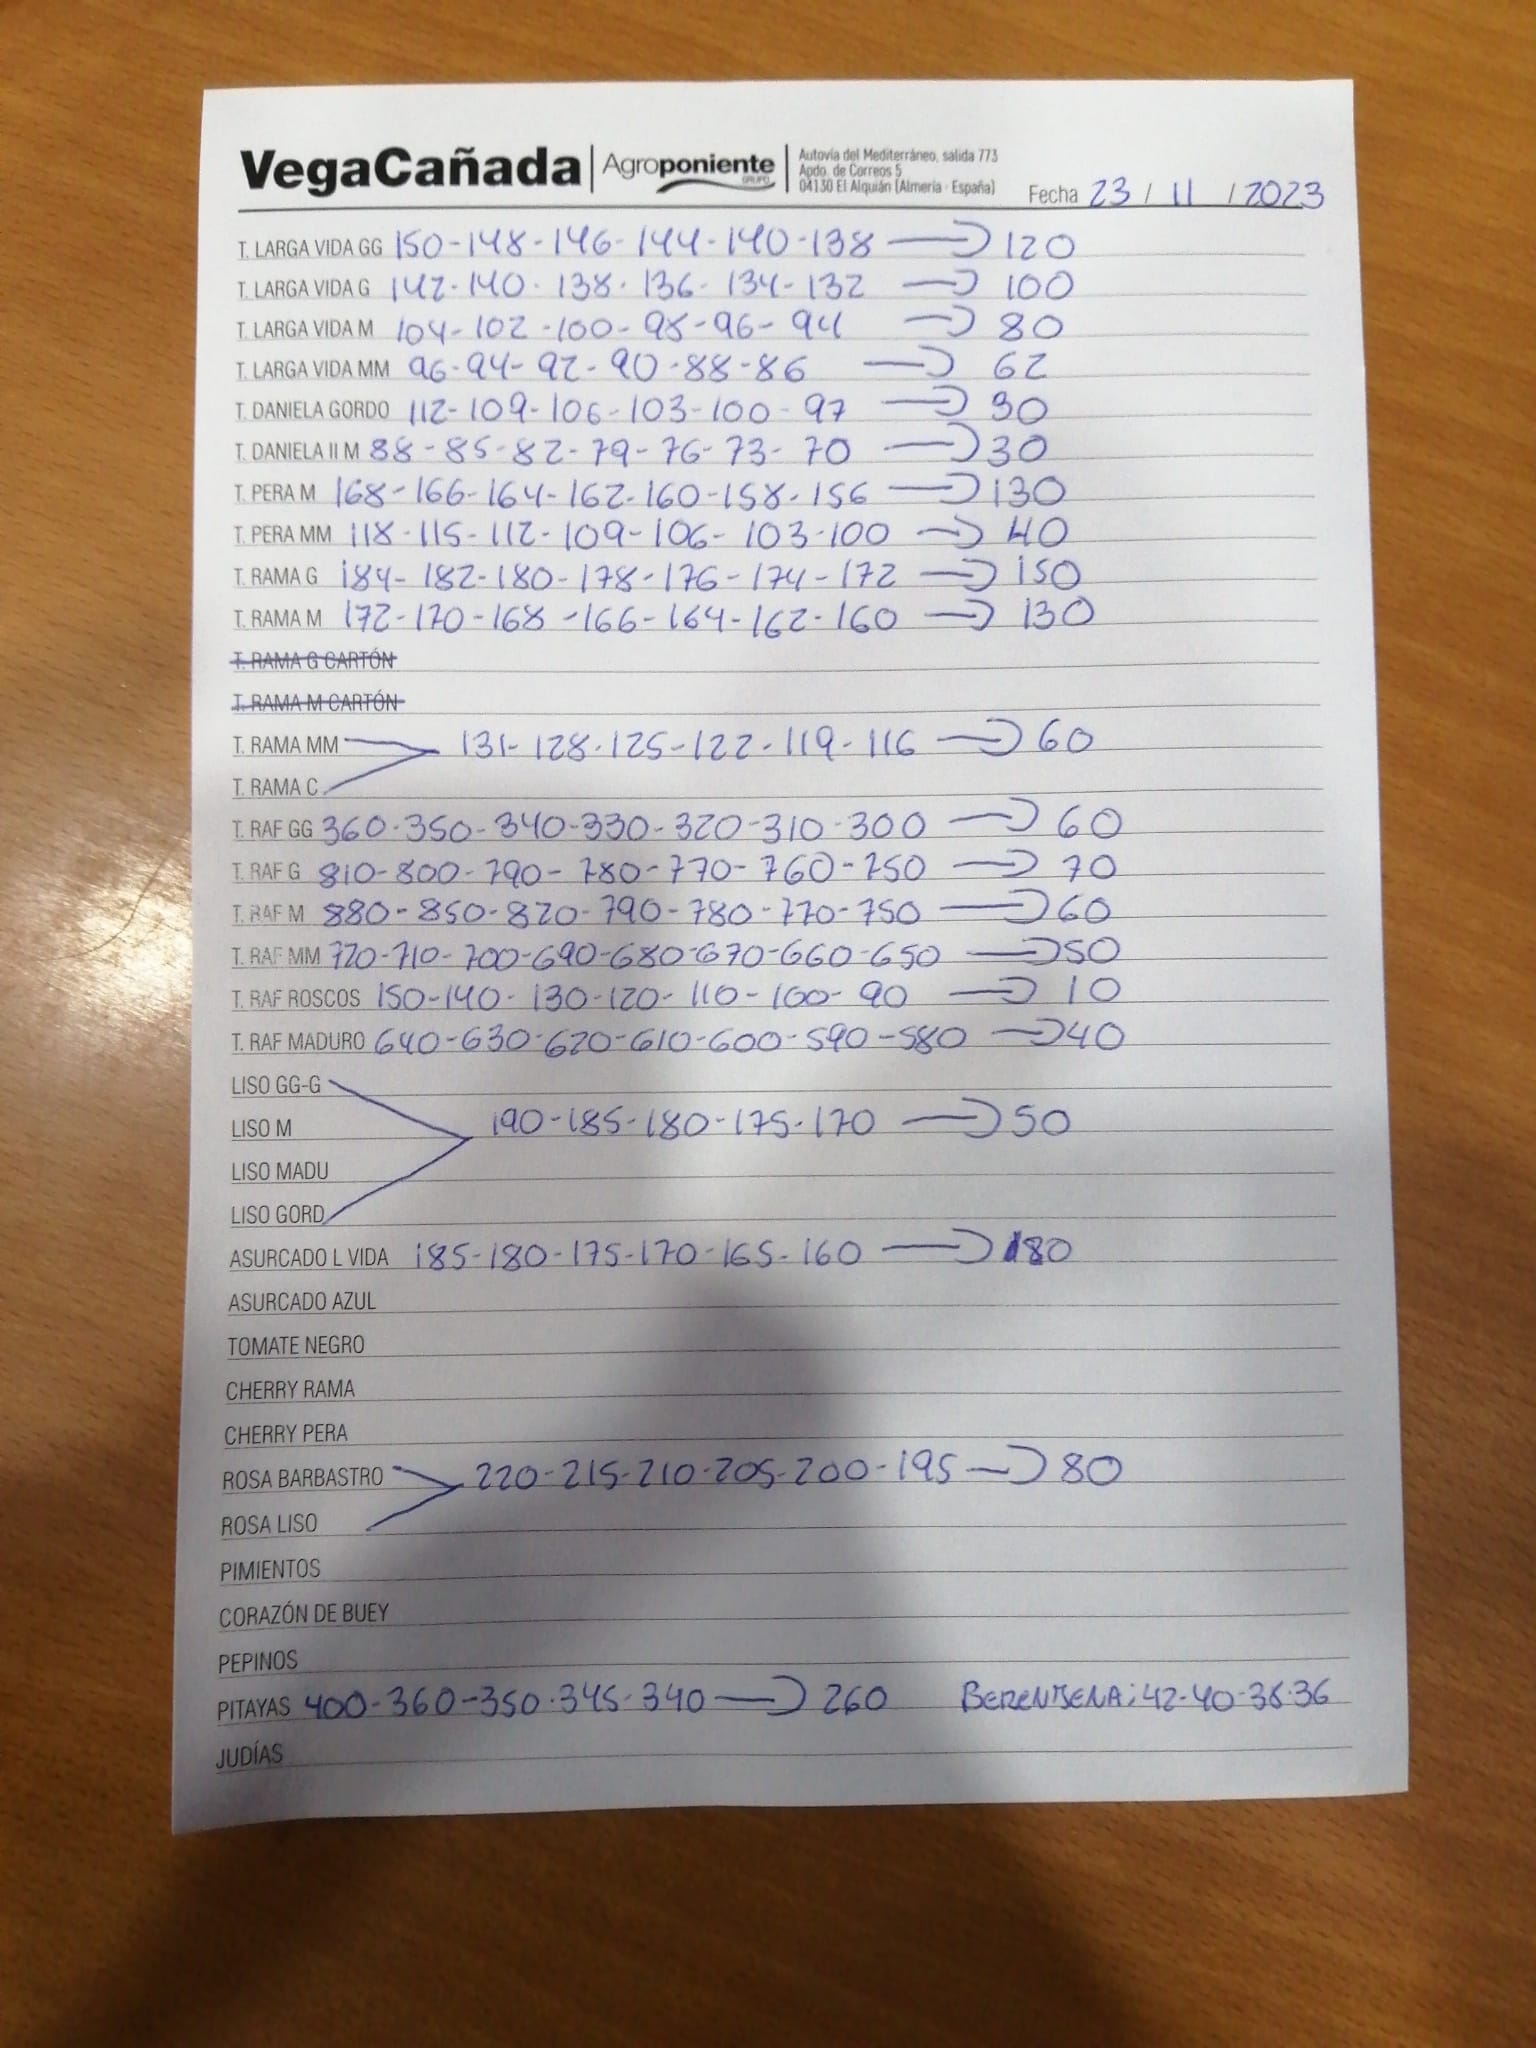 VegaCañada | Agroponiente GRUPO | Autovía del Mediterráneo, salida 773
Apdo. de Correos 5
04130 El Alquián (Almería - España)
Fecha 23 / 11 / 2023
T. LARGA VIDA GG 150-148-146-144-140-138 → 120
T. LARGA VIDA G 142-140-138-136-134-132 → 100
T. LARGA VIDA M 104-102-100-98-96-94 → 80
T. LARGA VIDA MM 96-94-92-90-88-86 → 62
T. DANIELA GORDO 112-109-106-103-100-97 → 90
T. DANIELA II M 88-85-82-79-76-73-70 → 30
T. PERA M 168-166-164-162-160-158-156 → 130
T. PERA MM 118-115-112-109-106-103-100 → 40
T. RAMA G 184-182-180-178-176-174-172 → 150
T. RAMA M 172-170-168-166-164-162-160 → 130
T. RAMA G CARTÓN
T. RAMA M CARTÓN
T. RAMA MM 131-128-125-122-119-116 → 60
T. RAMA C
T. RAF GG 360-350-340-330-320-310-300 → 60
T. RAF G 810-800-790-780-770-760-750 → 70
T. RAF M 880-850-820-790-780-770-750 → 60
T. RAF MM 720-710-700-690-680-670-660-650 → 50
T. RAF ROSCOS 150-140-130-120-110-100-90 → 10
T. RAF MADURO 640-630-620-610-600-590-580 → 40
LISO GG-G
LISO M 190-185-180-175-170 → 50
LISO MADU
LISO GORD
ASURCADO L VIDA 185-180-175-170-165-160 → 80
ASURCADO AZUL
TOMATE NEGRO
CHERRY RAMA
CHERRY PERA
ROSA BARBASTRO 220-215-210-205-200-195 → 80
ROSA LISO
PIMIENTOS
CORAZÓN DE BUEY
PEPINOS
PITAYAS 400-360-350-345-340 → 260 BERENJENA: 42-40-38-36
JUDÍAS